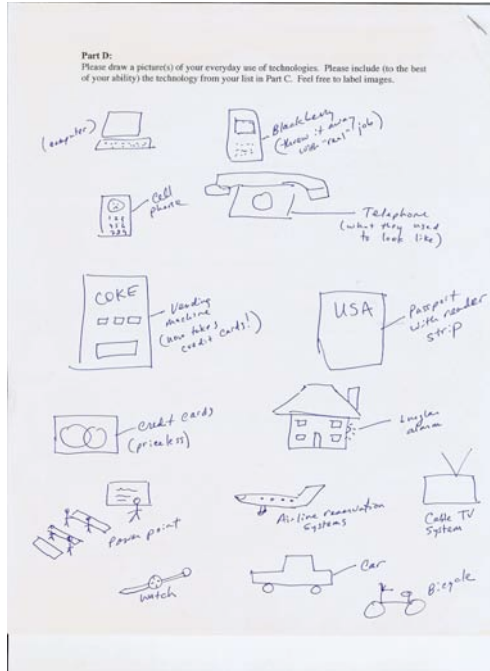 Part D:
Please draw a picture(s) of your everyday use of technologies. Please include (to the best
of your ability) the technology from your list in Part C. Feel free to label images.
(computer)
Blackberry
(threw it away
with "real" job)
Cell
phone
Telephone
(what they used
to look like)
COKE
Vending
machine
(now takes
credit cards!)
USA
Passport
with reader
strip
Credit cards
(priceless)
burglar
alarm
Power point
Airline reservation
Systems
Cable TV
System
Watch
Car
Bicycle